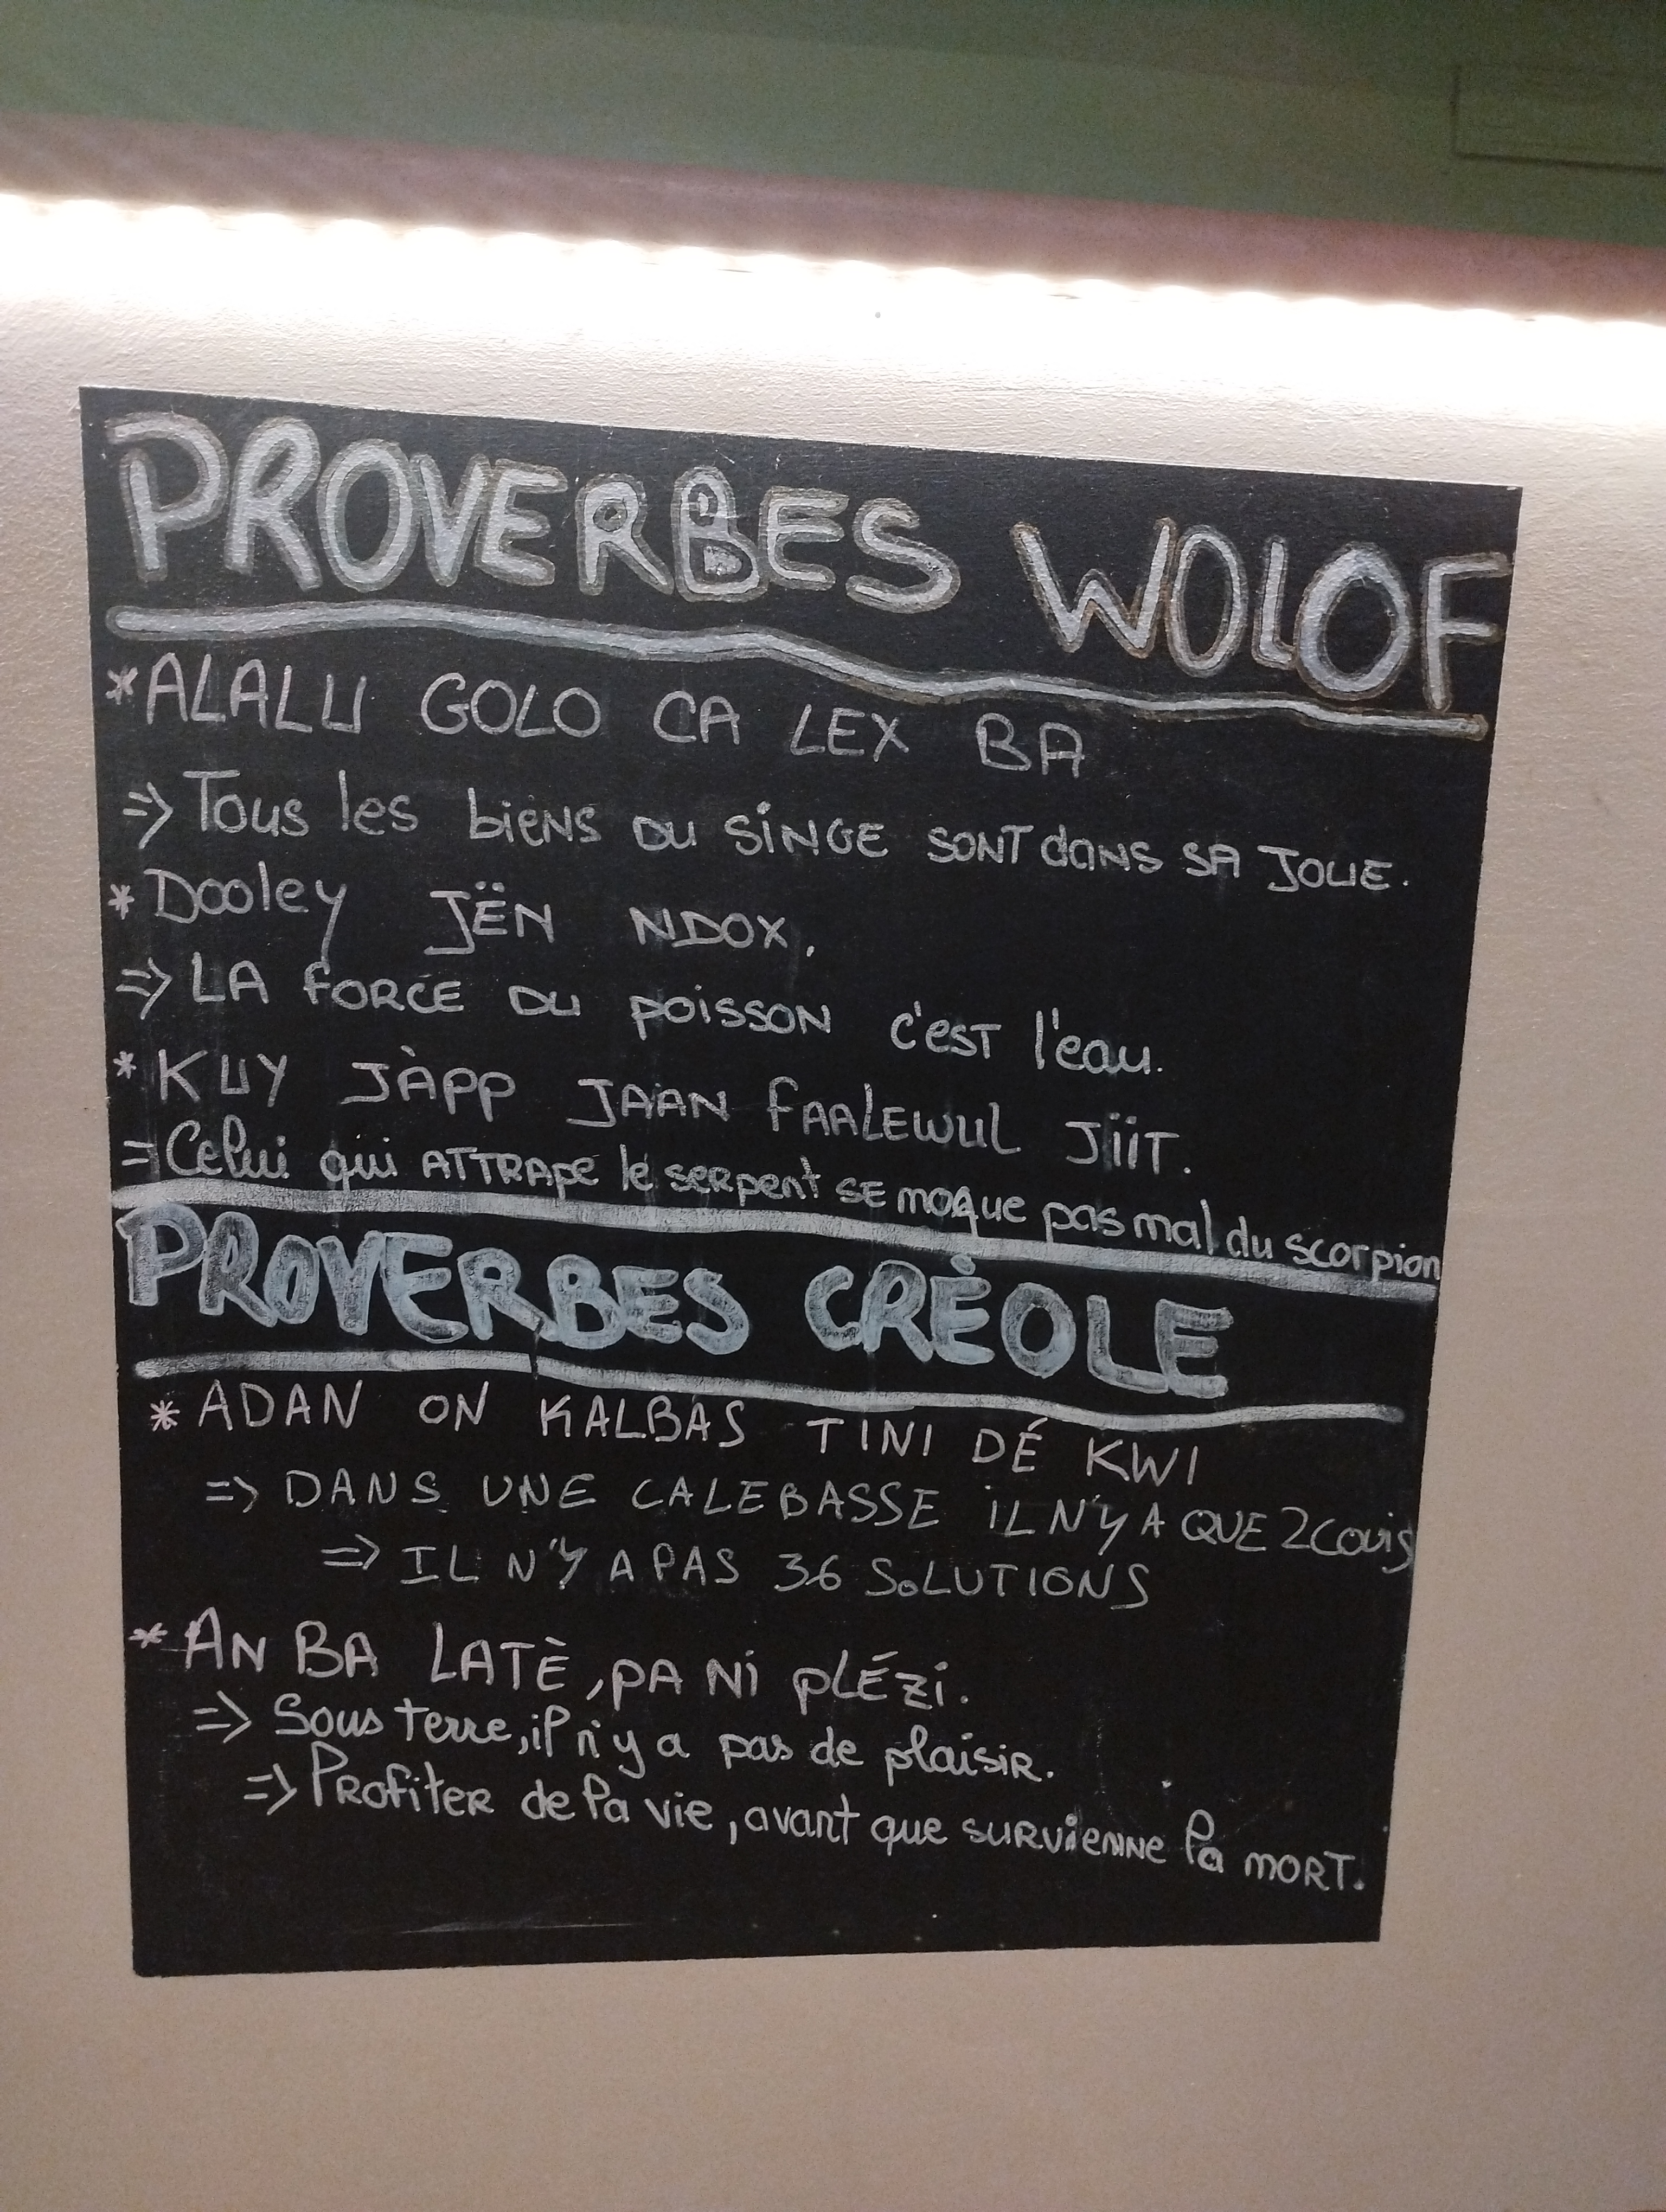 PROVERBES WOLOF
*ALALU GOLO CA LEX BA
=> Tous les biens du singe sont dans sa joue.
* Dooley JËN NDOX.
=> LA force du poisson c'est l'eau.
* KUY JÀPP JAAN FAALEWUL JïiT.
= Celui qui ATTRAPE le serpent se moque pas mal du scorpion
PROVERBES CRÉOLE
* ADAN ON KALBAS TINI DÉ KWI
=> DANS UNE CALEBASSE iL N'Y A QUE 2 Couis
=> IL N'Y A PAS 36 SOLUTIONS
* AN BA LATÈ, PA Ni PLÉZi.
=> Sous terre, il n'y a pas de plaisir.
=> Profiter de la vie, avant que survienne la MORT.